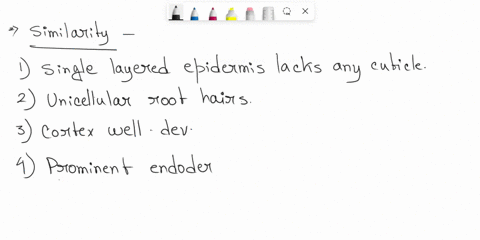 → Similarity –
1) Single layered epidermis lacks any cuticle.
2) Unicellular root hairs.
3) Cortex well. dev.
4) Prominent endoder